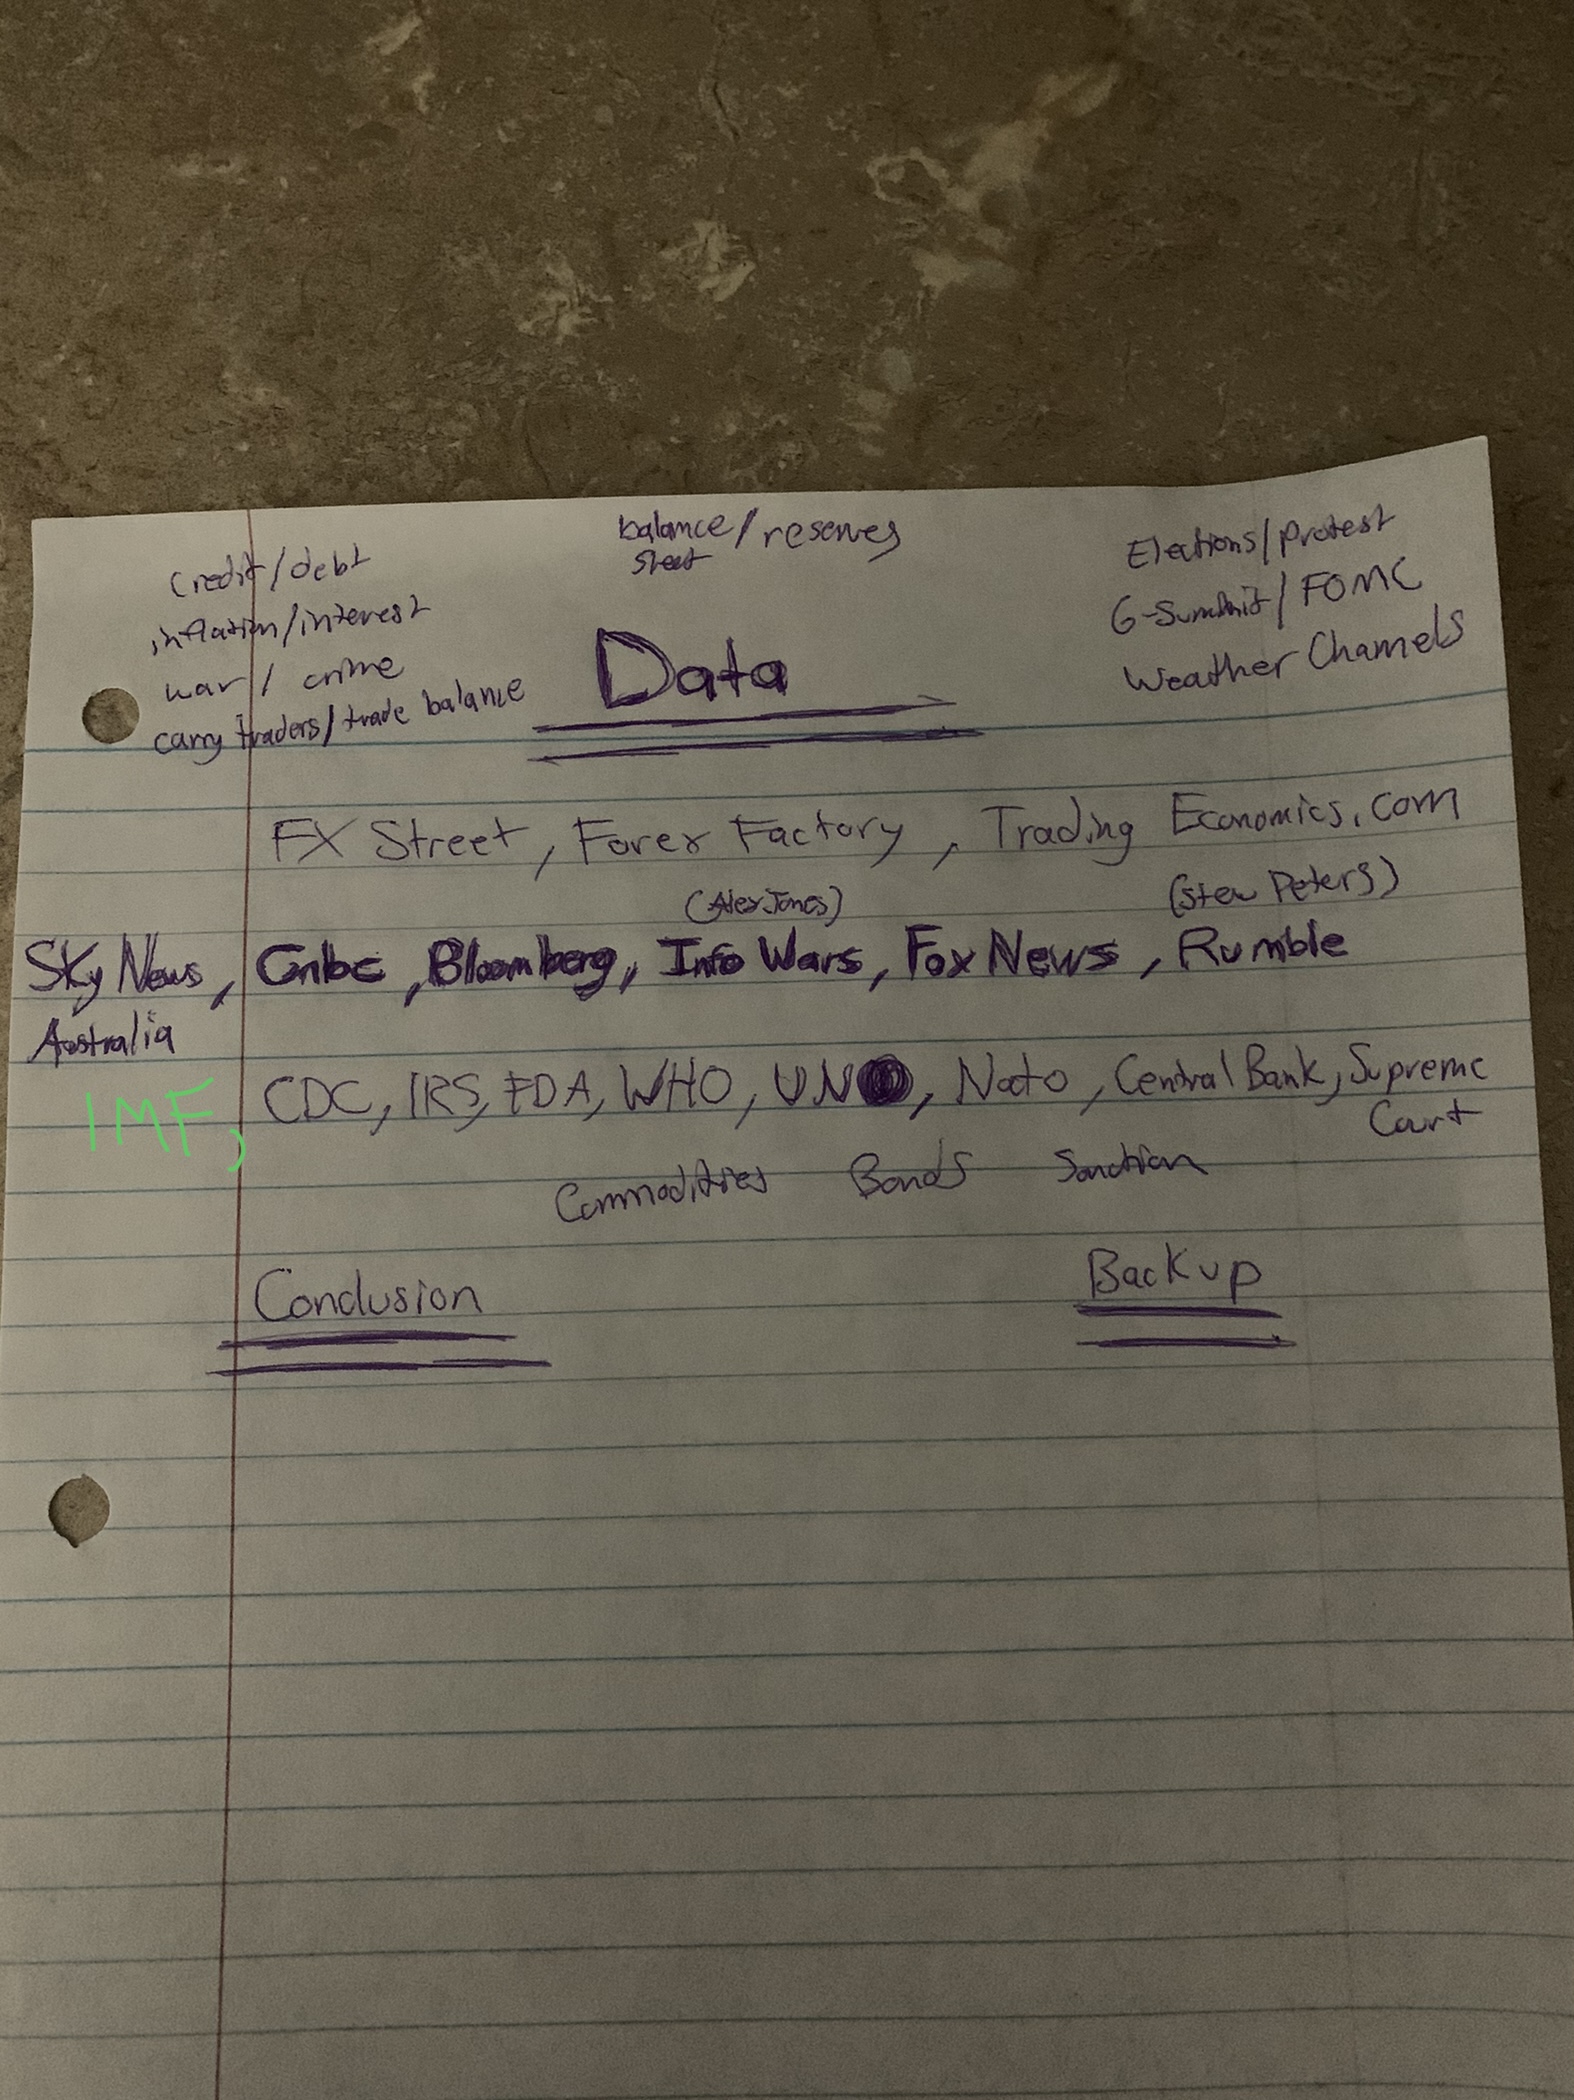 balance/reserves
sheet
Credit/debt
inflation/interest
war/crime
carry traders/trade balance
Elections/protest
G-Summit/FOMC
Weather Channels
Data
FX Street, Forex Factory, Trading Economics.com
(Alex Jones) (Stew Peters)
Sky News, Cnbc, Bloomberg, Info Wars, Fox News, Rumble
Australia
IMF, CDC, IRS, FDA, WHO, UN, Nato, Central Bank, Supreme
Court
Commodities Bonds Sanction
Conclusion Backup